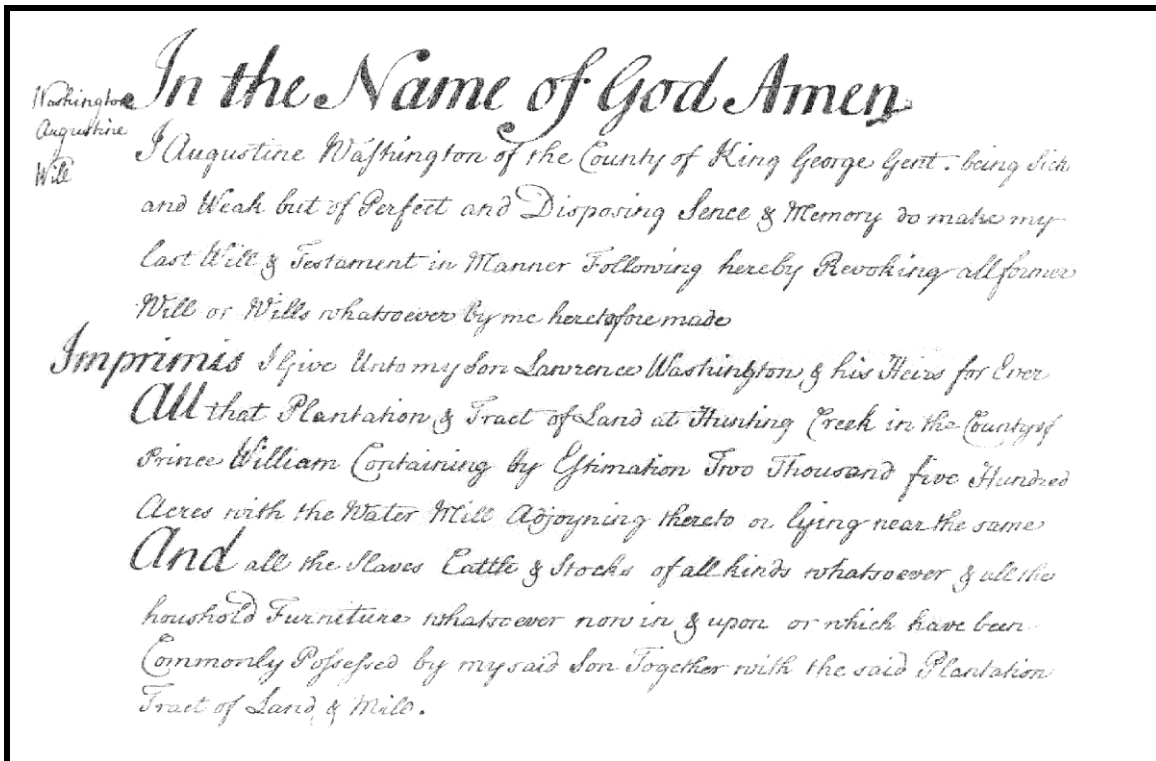 In the Name of God Amen
Washington
Augustine
Will
I Augustine Waſhington of the County of King George Gent. being Sick
and Weak but of Perfect and Disposing Sence & Memory do make my
last Will & Testament in Manner Following hereby Revoking all former
Will or Wills whatsoever by me heretofore made
Imprimis I Give Unto my Son Lawrence Washington & his Heirs for Ever
All that Plantation & Tract of Land at Hunting Creek in the County of
Prince William Containing by Eſtimation Two Thousand five Hundred
Acres with the Water Mill Adjoyning thereto or lying near the same
And all the Slaves Cattle & Stocks of all kinds whatsoever & all the
houshold Furniture whatsoever now in & upon or which have been
Commonly Poſsessed by my said Son Together with the said Plantation
Tract of Land & Mill.